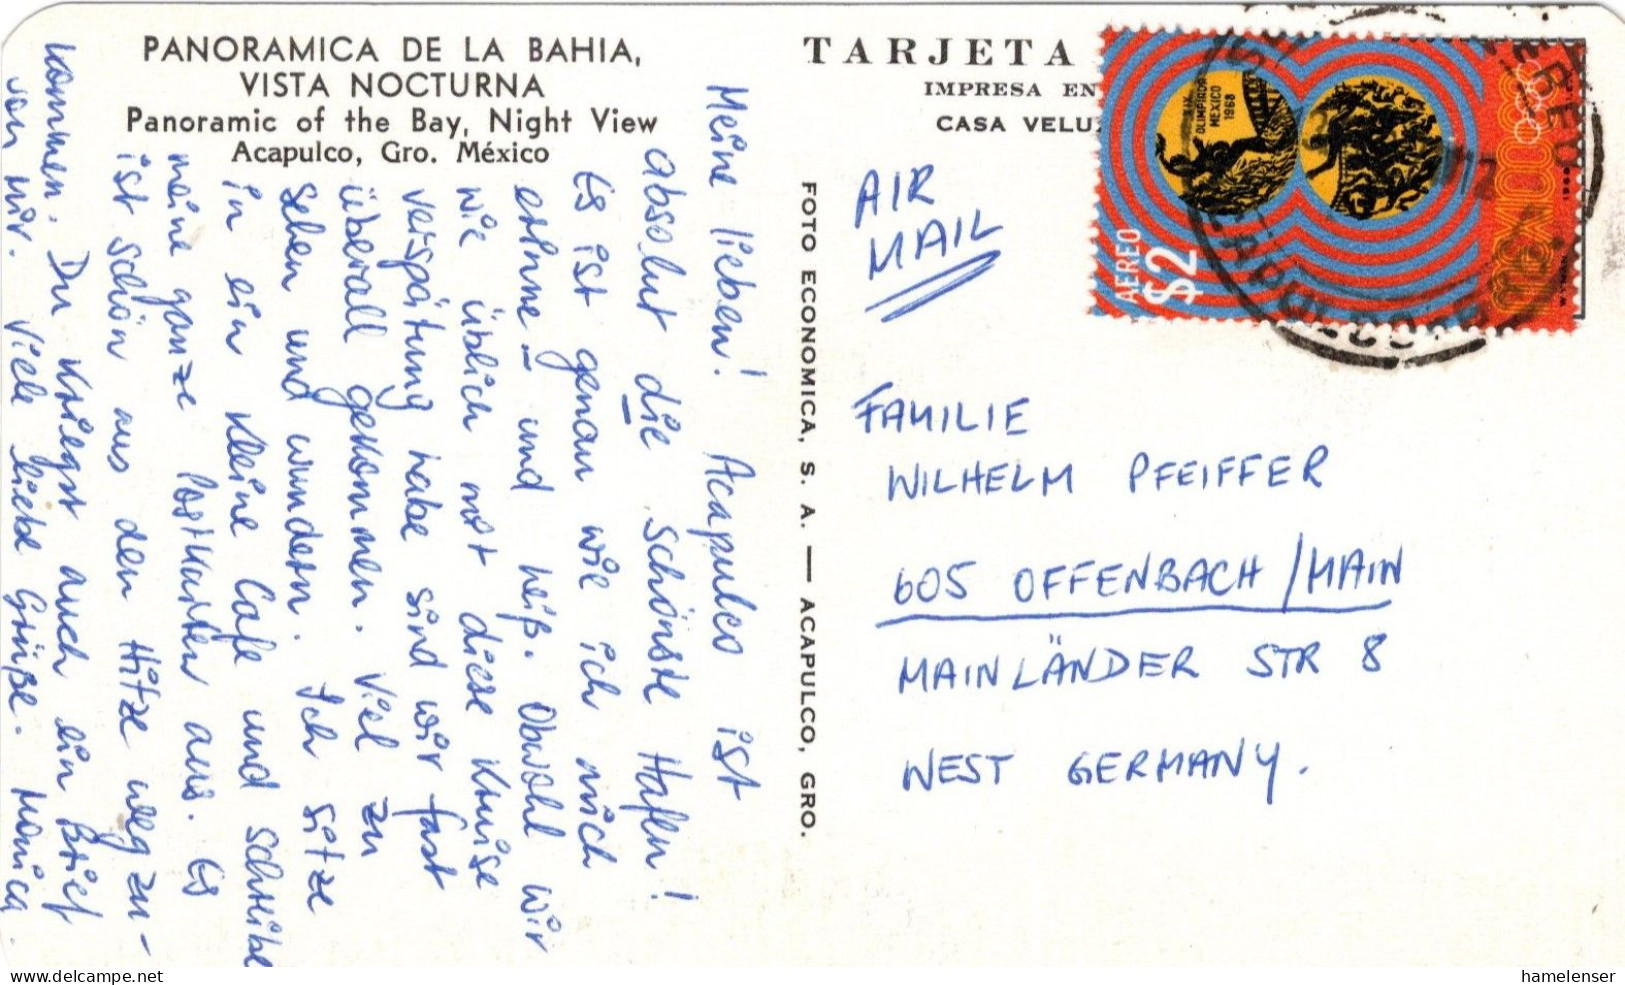 PANORAMICA DE LA BAHIA,
VISTA NOCTURNA
Panoramic of the Bay, Night View
Acapulco, Gro. México
Meine lieben! Acapulco ist
absolut die schönste Hafen!
Es ist genau wie ich mich
erinne – und heiß. Obwohl wir
wie üblich mit diese Kruise
verspätung habe sind wir fast
überall gekommen. Viel zu
sehen und wundern. Ich sitze
in ein kleine Cafe und schreibe
meine ganze Postkarten aus. Es
ist schön aus den Hitze wegzu-
kommen. Du kriegst auch ein Brief
von mir. Viele liebe Grüße. Monica.
FOTO ECONOMICA, S. A. — ACAPULCO, GRO.
TARJETA
IMPRESA EN
CASA VELU
AIR
MAIL
AEREO
$2
OLIMPIADA
MEXICO
1968
FAMILIE
WILHELM PFEIFFER
605 OFFENBACH/MAIN
MAINLÄNDER STR 8
WEST GERMANY.
delcampe.net
hamelenser